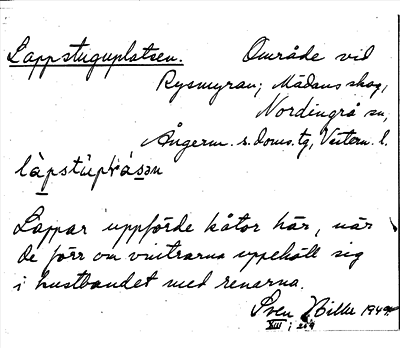 Lappstuguplatsen. Område vid
Rysmyran; Mädans skog,
Nordingrå sn,
Ångerm. s. doms. tg, Västern. l.
Lappar uppförde kåtor här, när
de förr om vintrarna uppehöll sig
i kustbandet med renarna.
Sven Bille 1949
XIII; 204